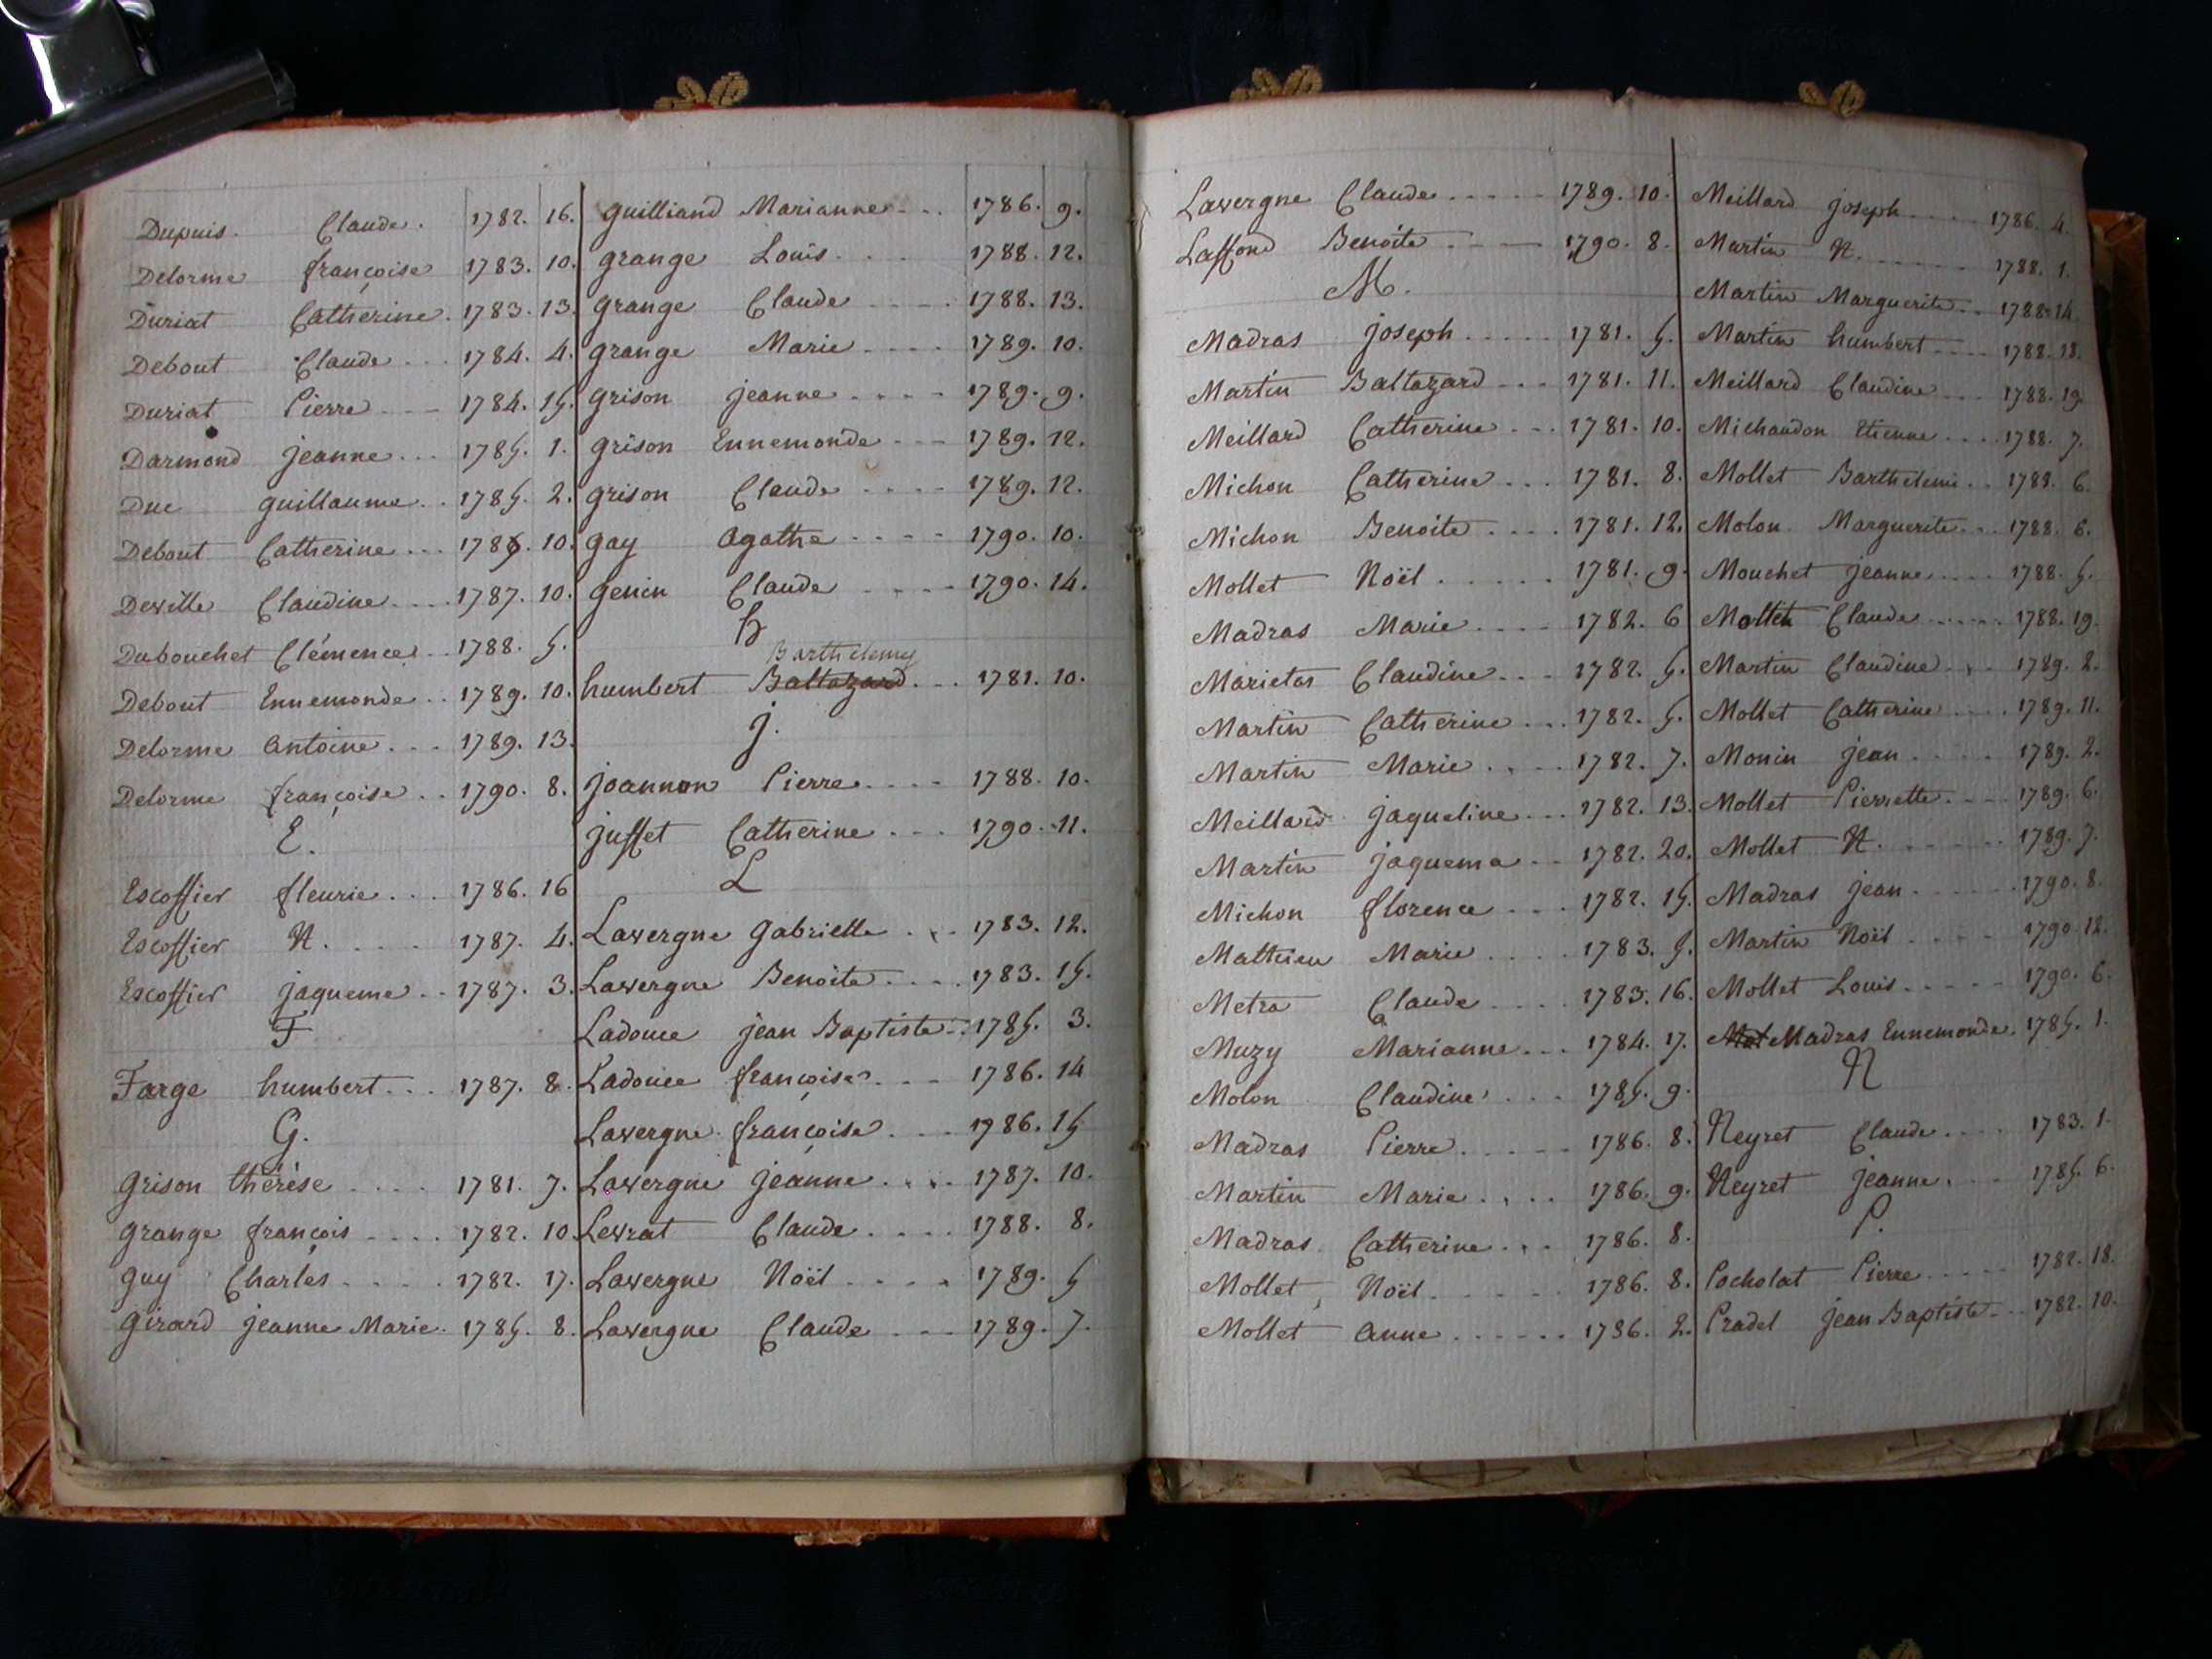 Dupuis. Claude. 1782. 16.
Delorme françoise 1783. 10.
Duriat Catherine. 1783. 13.
Debout Claude ... 1784. 4.
Duriat Pierre ... 1784. 15.
Darmond jeanne ... 1785. 1.
Duc guillaume .. 1785. 2.
Debout Catherine ... 1786. 10.
Deville Claudine .... 1787. 10.
Dubouchet Clémence .. 1788. 5.
Debout Ennemonde .. 1789. 10.
Delorme antoine ... 1789. 13.
Delorme françoise .. 1790. 8.
E.
Escoffier fleurie ... 1786. 16
Escoffier N. .... 1787. 4.
Escoffier jaqueme .. 1787. 3.
F
Farge humbert ... 1787. 8.
G.
grison thérèse .... 1781. 7.
grange françois .... 1782. 10.
guy Charles .... 1782. 17.
girard jeanne Marie. 1785. 8.
guilliand Marianne ... 1786. 9.
grange Louis .... 1788. 12.
grange Claude .... 1788. 13.
grange Marie .... 1789. 10.
grison jeanne .... 1789. 9.
grison Ennemonde ... 1789. 12.
grison Claude .... 1789. 12.
gay agathe .... 1790. 10.
genin Claude .... 1790. 14.
h
Barthelemy
humbert Baltazard ... 1781. 10.
j.
joannon Pierre .... 1788. 10.
juffet Catherine ... 1790. 11.
L
Lavergne gabrielle ... 1783. 12.
Lavergne Benoite .... 1783. 15.
Ladouce jean Baptiste .. 1785. 3.
Ladouce françoise ... 1786. 14
Lavergne françoise ... 1786. 15
Lavergne jeanne .... 1787. 10.
Levrat Claude .... 1788. 8.
Lavergne Noël .... 1789. 5
Lavergne Claude ... 1789. 7.
Lavergne Claude ..... 1789. 10.
Laffond Benoite .... 1790. 8.
M.
Madras joseph ..... 1781. 5.
Martin Baltazard ... 1781. 11.
Meillard Catherine ... 1781. 10.
Michon Catherine ... 1781. 8.
Michon Benoite .... 1781. 12.
Mollet Noël ...... 1781. 9.
Madras Marie .... 1782. 6
Marietas Claudine ... 1782. 5.
Martin Catherine ... 1782. 5.
Martin Marie .... 1782. 7.
Meillard jaqueline ... 1782. 13.
Martin jaquema .. 1782. 20.
Michon florence ... 1782. 15.
Mathieu Marie .... 1783. 5.
Metra Claude .... 1783. 16.
Muzy Marianne ... 1784. 17.
Molon Claudine ... 1785. 9.
Madras Pierre ..... 1786. 8.
Martin Marie .... 1786. 9.
Madras Catherine ... 1786. 8.
Mollet Noël ...... 1786. 8.
Mollet anne ...... 1786. 2.
Meillard joseph .... 1786. 4.
Martin N. ....... 1788. 1.
Martin Marguerite .. 1788. 14.
Martin humbert .... 1788. 18.
Meillard Claudine ... 1788. 19.
Michaudon Etienne .... 1788. 7.
Mollet Barthelemi .. 1788. 6.
Molon Marguerite ... 1788. 6.
Mouchet jeanne .... 1788. 5.
Mollet Claude ...... 1788. 19.
Martin Claudine ... 1789. 2.
Mollet Catherine .... 1789. 11.
Monin jean ..... 1789. 2.
Mollet Pierrette .... 1789. 6.
Mollet N. ...... 1789. 7.
Madras jean ...... 1790. 8.
Martin Noël .... 1790. 12.
Mollet Louis ..... 1790. 6.
Madras Ennemonde. 1785. 1.
N
Neyret Claude .... 1783. 1.
Neyret jeanne .... 1785. 6.
P.
Pocholat Pierre ..... 1782. 18.
Pradel jean Baptiste .. 1782. 10.